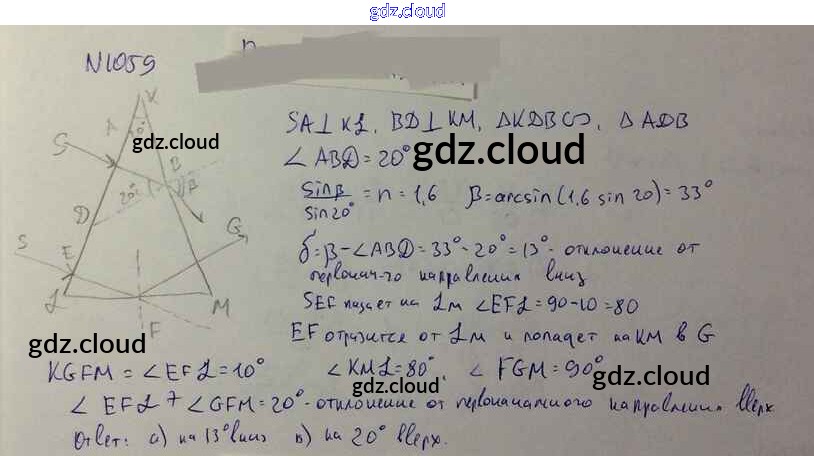 gdz.cloud
N1059
K
A
S
gdz.cloud
B
20°
β
D
G
S
E
L
M
F
gdz.cloud
SA⊥KL, BD⊥KM, ΔKDB∽, ΔADB
∠ABD=20°
gdz.cloud
sinβ/sin20° = n = 1,6 β=arcsin(1,6 sin 20)=33°
δ=β-∠ABD=33°-20°=13°- отклонение от
первонач-го направления вниз
SEF падает на LM ∠EFL=90-10=80
EF отразится от LM и попадет на KM в G
KGFM = ∠EFL=10° ∠KML=80°, ∠FGM=90°
gdz.cloud
gdz.cloud
∠EFL + ∠GFM=20°- отклонение от первоначального направления вверх
Ответ: а) на 13° вниз в) на 20° вверх.